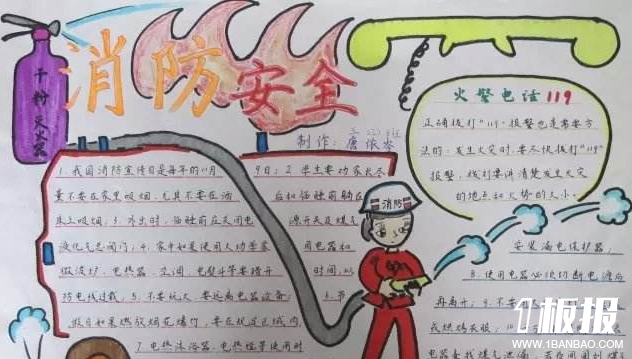 干粉灭火器
消防安全
制作:
火警电话119
正确拨打"119"报警也是需要方
法的:发生火灾时,要尽快拨打"119"
报警,拨打时要讲清楚发生火灾
的地点和火势的大小。
消防
1.我国消防宣传日是每年的11月
9日;2.学生要劝家长尽
量不要在家里吸烟,尤其不要在酒
后和临睡前躺在
床上吸烟;3.外出时、临睡前应关闭电
源开关及煤气
液化气总阀门;4.家中如果使用大功率家
用电器如
微波炉、电热器、空调、电熨斗等要错开
时间,以
防电线过载;5.不要玩火,要远离电器设备;
6.节
假日如果燃放烟花爆竹,要在规定区域内
7.电热沐浴器、电热毯等使用时
安装漏电保护器;
8.使用电器必须切断电源后
再离开;9.不要
1板报
WWW.1BANBAO.COM